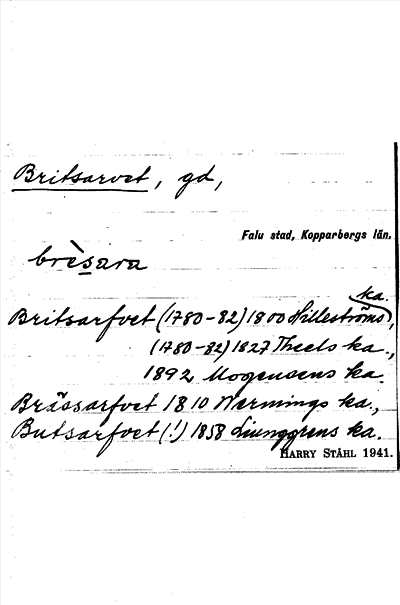 Britsarvet, gd,
Falu stad, Kopparbergs län.
brèsara
Britsarfvet (1780-82) 1800 Hilleströms ka.,
(1780-82) 1827 Theels ka.,
1892 Mogensens ka.
Brässarfvet 1810 Wermings ka.,
Butsarfvet (!) 1858 Ljunggrens ka.
HARRY STÅHL 1941.